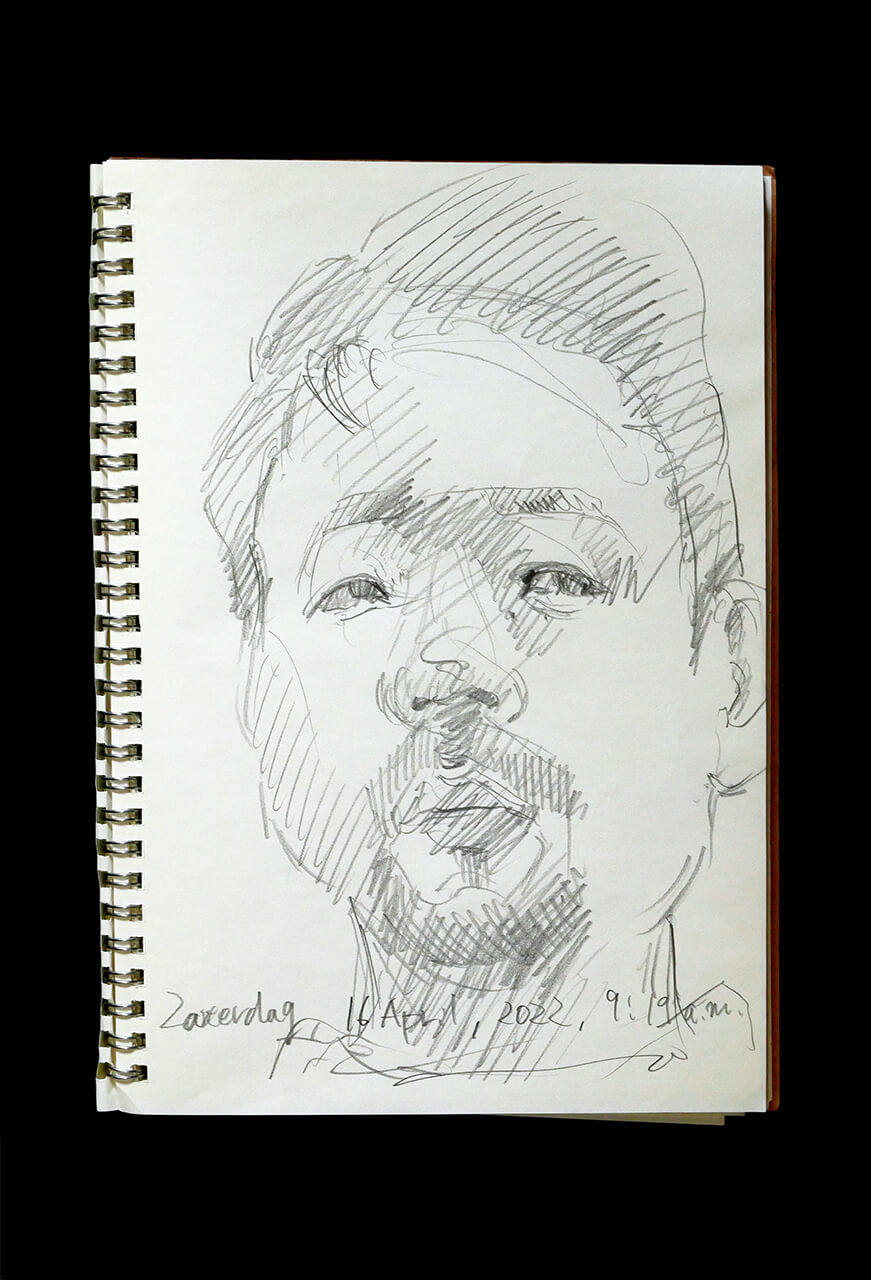 Zaterdag 16 April, 2022, 9:19 a.m.